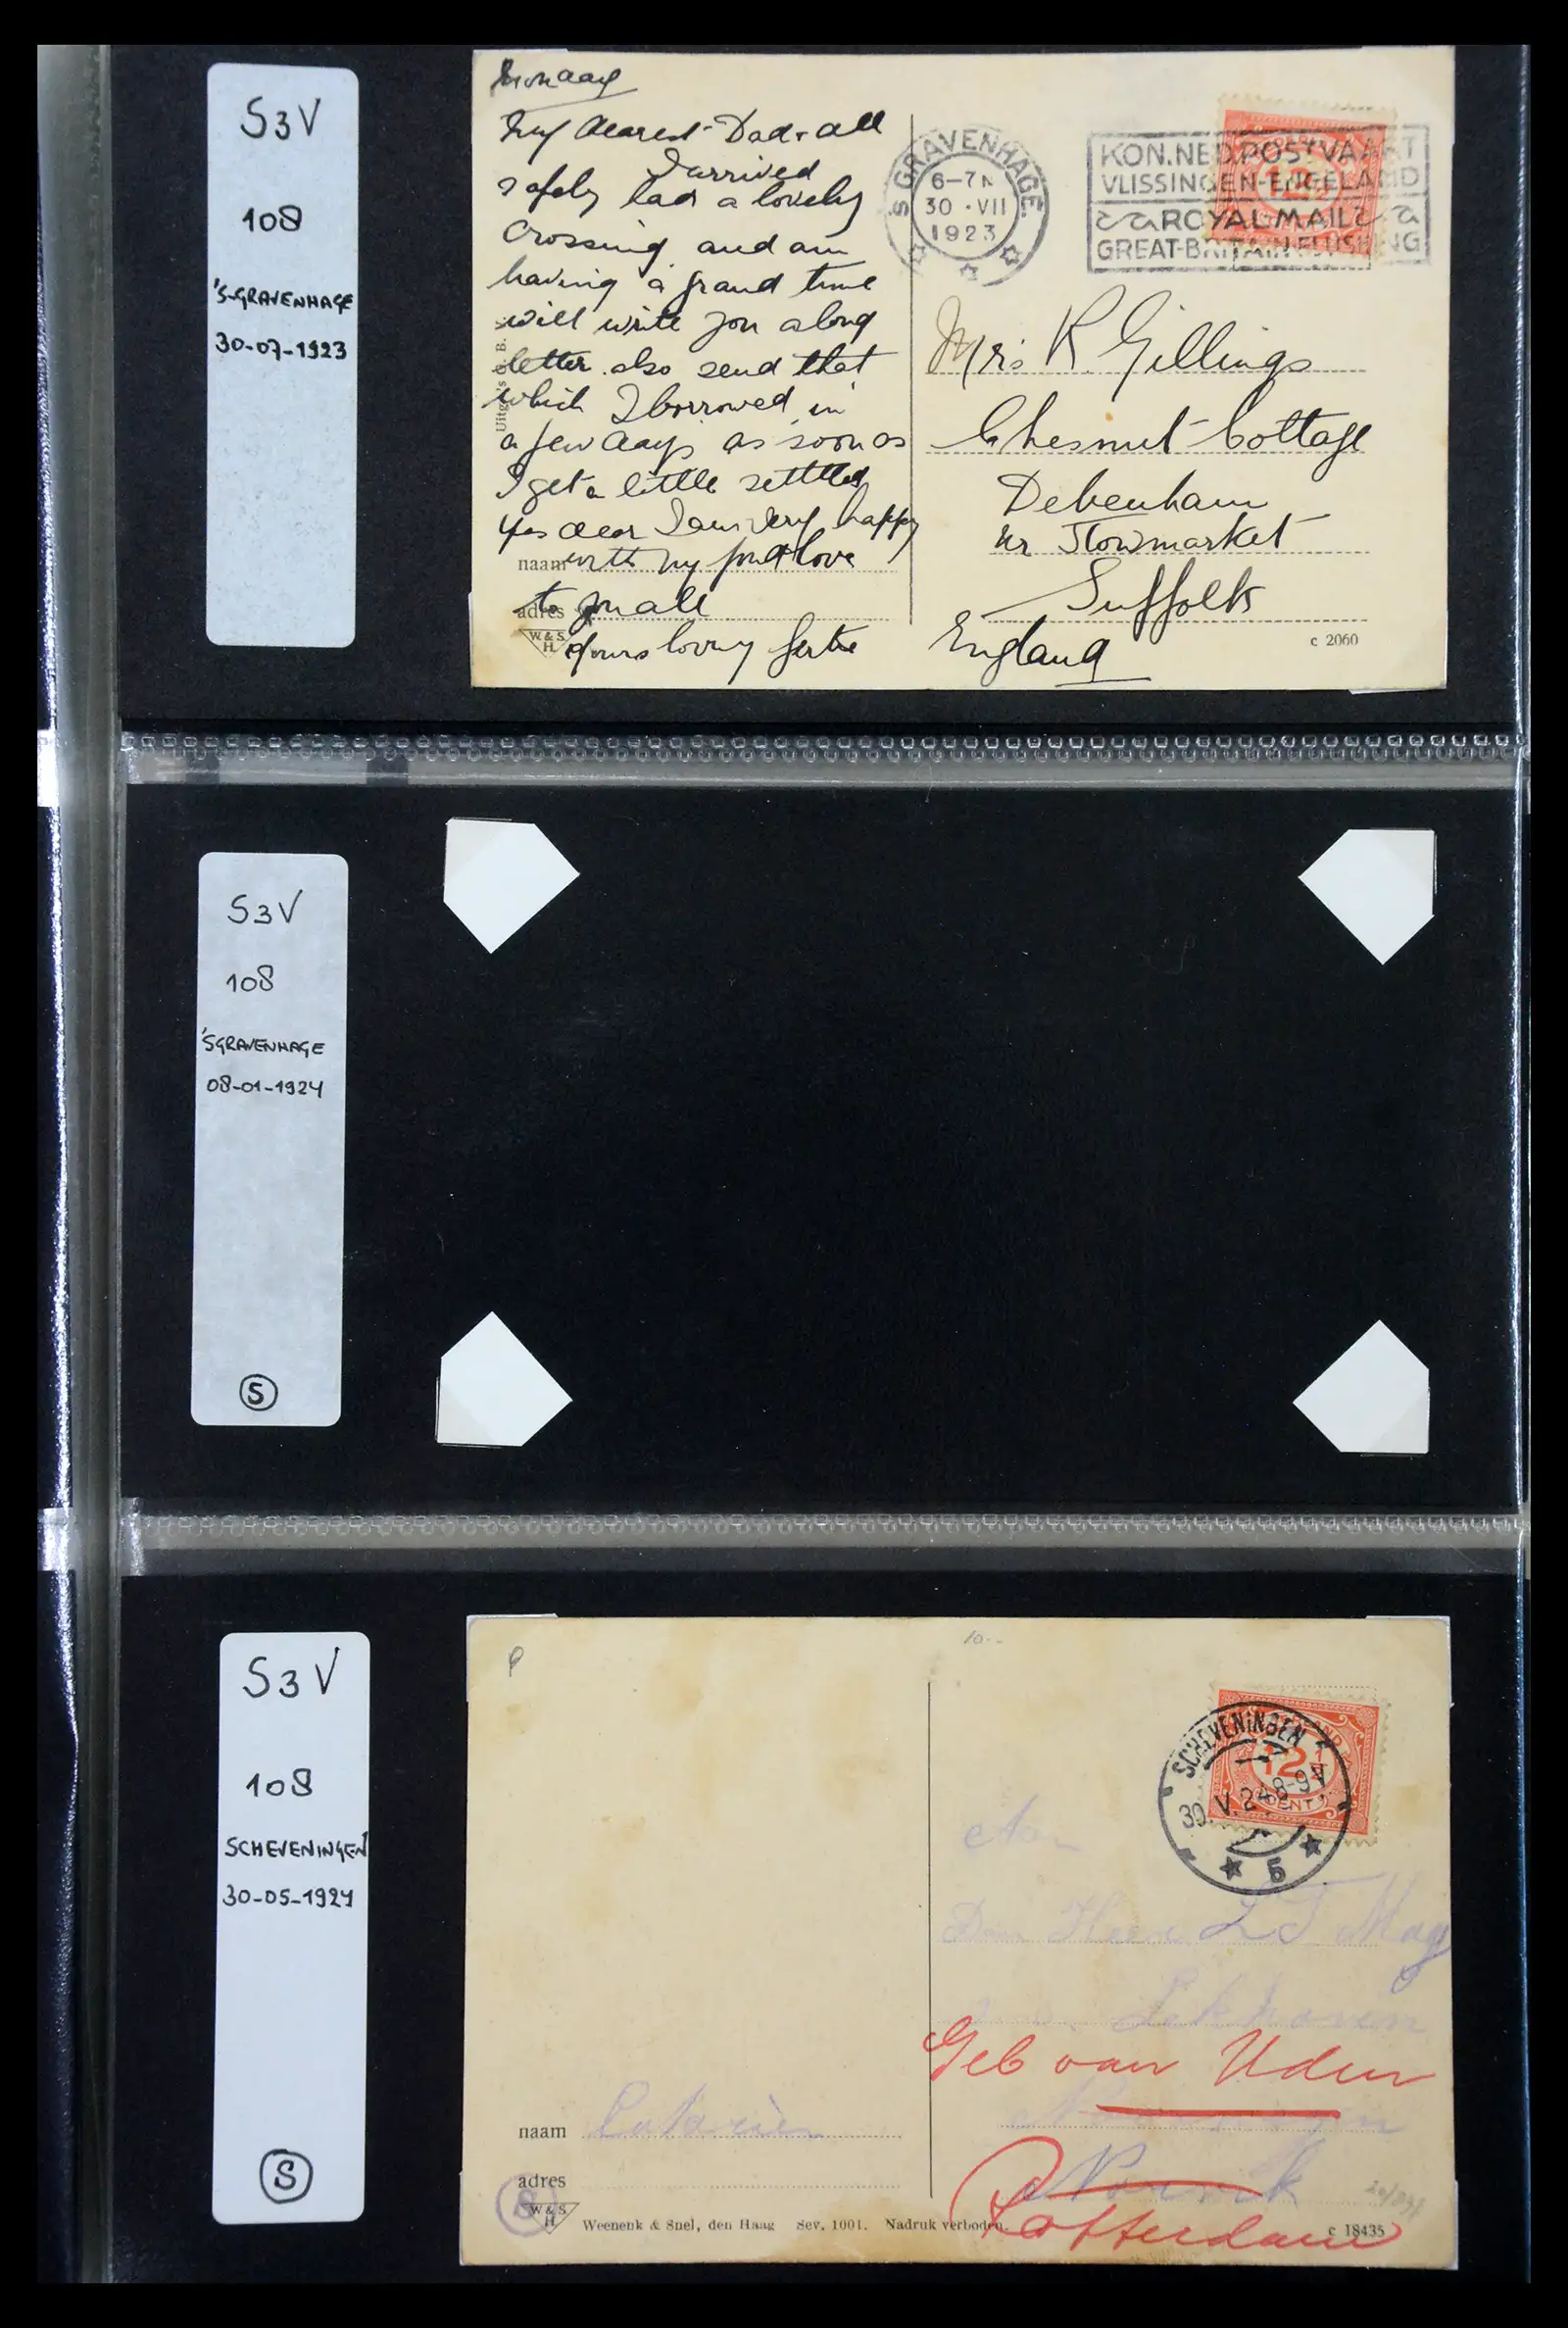 S3V
108
'S-GRAVENHAGE
30-07-1923
Monday
My dearest Dad & all
I arrived
safely had a lovely
crossing and am
having a grand time
will write you a long
letter also send that
which I borrowed in
a few days as soon as
I get a little settled
Yes dear I am very happy
with my fond love
to you all
Yours loving Gertie
naam
adres
W. & S.
H.
'S GRAVENHAGE.
6-7N
30·VII
1923
KON.NED.POSTVAART
VLISSINGEN-ENGELAND
ROYAL MAIL
GREAT-BRITAIN-FLUSHING
Mrs R. Gillings
Chesnut Cottage
Debenham
Nr Stowmarket
Suffolk
England
c 2060
S3V
108
'SGRAVENHAGE
08-01-1924
S
S3V
108
SCHEVENINGEN
30-05-1924
S
10.-
SCHEVENINGEN
12½
CENT
30.V.24.8-9V
5
Aan
Den Heer L T May
Lekhaven
Geb van Uden
Rotterdam
naam
adres
S
W. & S.
H.
Weenenk & Snel, den Haag Sev. 1001. Nadruk verboden.
c 18435